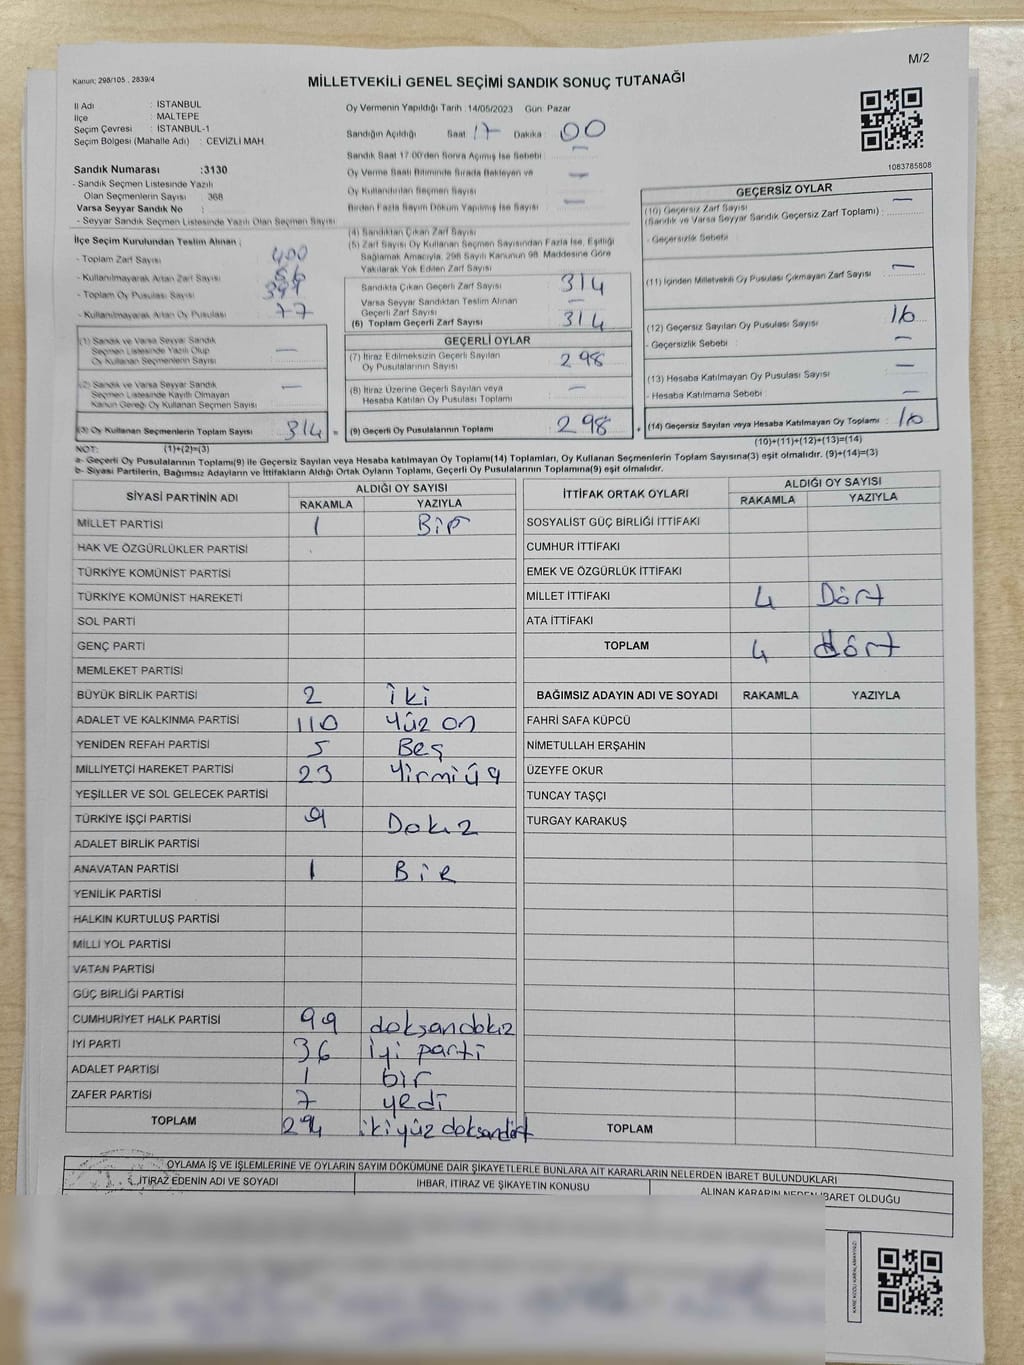 M/2
Kanun: 298/105 , 2839/4
MİLLETVEKİLİ GENEL SEÇİMİ SANDIK SONUÇ TUTANAĞI
İl Adı : İSTANBUL
İlçe : MALTEPE
Seçim Çevresi : İSTANBUL-1
Seçim Bölgesi (Mahalle Adı) : CEVİZLİ MAH.
Oy Vermenin Yapıldığı Tarih : 14/05/2023 Gün: Pazar
Sandığın Açıldığı Saat : 17 Dakika : 00
Sandık Saat 17:00'den Sonra Açılmış İse Sebebi : —
Oy Verme Saati Bitiminde Sırada Bekleyen ve
Oy Kullandırılan Seçmen Sayısı : —
Birden Fazla Sayım Döküm Yapılmış İse Sayısı : —
1083785808
Sandık Numarası :3130
- Sandık Seçmen Listesinde Yazılı
Olan Seçmenlerin Sayısı : 368
Varsa Seyyar Sandık No :
- Seyyar Sandık Seçmen Listesinde Yazılı Olan Seçmen Sayısı
İlçe Seçim Kurulundan Teslim Alınan :
- Toplam Zarf Sayısı : 400
- Kullanılmayarak Artan Zarf Sayısı :
- Toplam Oy Pusulası Sayısı :
- Kullanılmayarak Artan Oy Pusulası : 77
(1) Sandık ve Varsa Seyyar Sandık
Seçmen Listesinde Yazılı Olup
Oy Kullanan Seçmenlerin Sayısı : —
(2) Sandık ve Varsa Seyyar Sandık
Seçmen Listesinde Kayıtlı Olmayan
Kanun Gereği Oy Kullanan Seçmen Sayısı : —
(3) Oy Kullanan Seçmenlerin Toplam Sayısı : 314
(4) Sandıktan Çıkan Zarf Sayısı
(5) Zarf Sayısı Oy Kullanan Seçmen Sayısından Fazla İse, Eşitliği
Sağlamak Amacıyla, 298 Sayılı Kanunun 98. Maddesine Göre
Yakılarak Yok Edilen Zarf Sayısı
Sandıkta Çıkan Geçerli Zarf Sayısı : 314
Varsa Seyyar Sandıktan Teslim Alınan
Geçerli Zarf Sayısı : —
(6) Toplam Geçerli Zarf Sayısı : 314
GEÇERLİ OYLAR
(7) İtiraz Edilmeksizin Geçerli Sayılan
Oy Pusulasının Sayısı : 298
(8) İtiraz Üzerine Geçerli Sayılan veya
Hesaba Katılan Oy Pusulası Toplamı : —
(9) Geçerli Oy Pusulalarının Toplamı : 298
GEÇERSİZ OYLAR
(10) Geçersiz Zarf Sayısı
(Sandık ve Varsa Seyyar Sandık Geçersiz Zarf Toplamı) : —
- Geçersizlik Sebebi :
(11) İçinden Milletvekili Oy Pusulası Çıkmayan Zarf Sayısı : —
(12) Geçersiz Sayılan Oy Pusulası Sayısı : 16
- Geçersizlik Sebebi : —
(13) Hesaba Katılmayan Oy Pusulası Sayısı : —
- Hesaba Katılmama Sebebi : —
(14) Geçersiz Sayılan veya Hesaba Katılmayan Oy Toplamı : 16
NOT: (1)+(2)=(3)
(10)+(11)+(12)+(13)=(14)
a- Geçerli Oy Pusulalarının Toplamı(9) ile Geçersiz Sayılan veya Hesaba katılmayan Oy Toplamı(14) Toplamları, Oy Kullanan Seçmenlerin Toplam Sayısına(3) eşit olmalıdır. (9)+(14)=(3)
b- Siyasi Partilerin, Bağımsız Adayların ve İttifakların Aldığı Ortak Oyların Toplamı, Geçerli Oy Pusulalarının Toplamına(9) eşit olmalıdır.
SİYASİ PARTİNİN ADI ALDIĞI OY SAYISI
RAKAMLA YAZIYLA
MİLLET PARTİSİ 1 Bir
HAK VE ÖZGÜRLÜKLER PARTİSİ
TÜRKİYE KOMÜNİST PARTİSİ
TÜRKİYE KOMÜNİST HAREKETİ
SOL PARTİ
GENÇ PARTİ
MEMLEKET PARTİSİ
BÜYÜK BİRLİK PARTİSİ 2 İki
ADALET VE KALKINMA PARTİSİ 110 Yüz on
YENİDEN REFAH PARTİSİ 5 Beş
MİLLİYETÇİ HAREKET PARTİSİ 23 Yirmi üç
YEŞİLLER VE SOL GELECEK PARTİSİ
TÜRKİYE İŞÇİ PARTİSİ 9 Dokız
ADALET BİRLİK PARTİSİ
ANAVATAN PARTİSİ 1 BİR
YENİLİK PARTİSİ
HALKIN KURTULUŞ PARTİSİ
MİLLİ YOL PARTİSİ
VATAN PARTİSİ
GÜÇ BİRLİĞİ PARTİSİ
CUMHURİYET HALK PARTİSİ 99 doksandokız
İYİ PARTİ 36 iyi parti
ADALET PARTİSİ 1 bir
ZAFER PARTİSİ 7 yedi
TOPLAM 294 ikiyüz doksandört
İTTİFAK ORTAK OYLARI ALDIĞI OY SAYISI
RAKAMLA YAZIYLA
SOSYALİST GÜÇ BİRLİĞİ İTTİFAKI
CUMHUR İTTİFAKI
EMEK VE ÖZGÜRLÜK İTTİFAKI
MİLLET İTTİFAKI 4 Dört
ATA İTTİFAKI
TOPLAM 4 dört
BAĞIMSIZ ADAYIN ADI VE SOYADI RAKAMLA YAZIYLA
FAHRİ SAFA KÜPCÜ
NİMETULLAH ERŞAHİN
ÜZEYFE OKUR
TUNCAY TAŞÇI
TURGAY KARAKUŞ
TOPLAM
OYLAMA İŞ VE İŞLEMLERİNE VE OYLARIN SAYIM DÖKÜMÜNE DAİR ŞİKAYETLERLE BUNLARA AİT KARARLARIN NELERDEN İBARET BULUNDUKLARI
İTİRAZ EDENİN ADI VE SOYADI İHBAR, İTİRAZ VE ŞİKAYETİN KONUSU ALINAN KARARIN NEDEN İBARET OLDUĞU